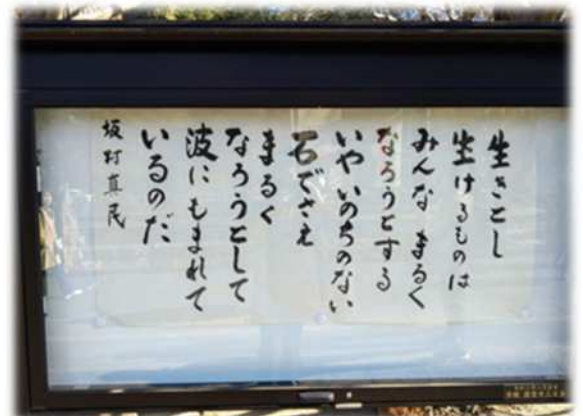 生きとし
生けるものは
みんな まるく
なろうとする
いや いのちのない
石でさえ
まるく
なろうとして
波に もまれて
いるのだ
坂村真民